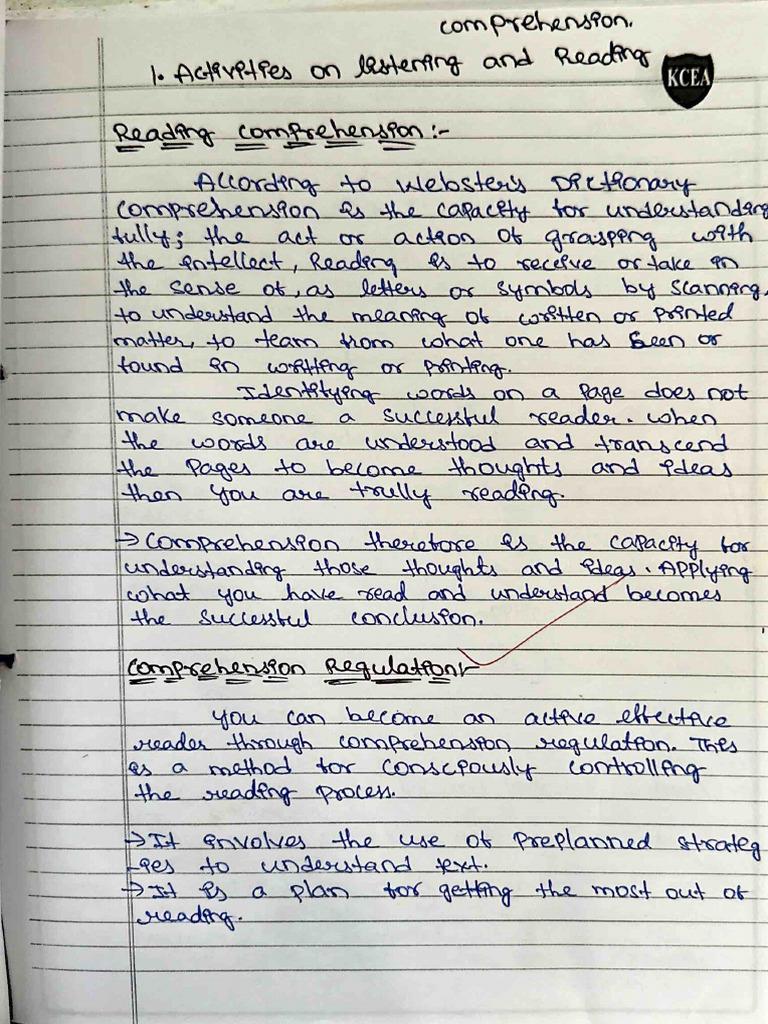 comprehension.
1. Activities on listening and Reading
KCEA
Reading comprehension:-
According to Webster's Dictionary
comprehension is the capacity for understanding
fully; the act or action of grasping with
the intellect, Reading is to receive or take in
the sense of, as letters or symbols by scanning,
to understand the meaning of written or printed
matter, to team from what one has seen or
found in writting or printing.
Identitying words on a page does not
make someone a successful reader. when
the words are understood and transcend
the pages to become thoughts and ideas
then you are trully reading.
→ comprehension therefore is the capacity for
understanding those thoughts and ideas. Applying
what you have read and understand becomes
the successful conclusion.
comprehension Regulation:-
you can become an active effective
reader through comprehension regulation. This
is a method for consciously controlling
the reading process.
→ It involves the use of preplanned strateg
-ies to understand text.
→ It is a plan for getting the most out of
reading.